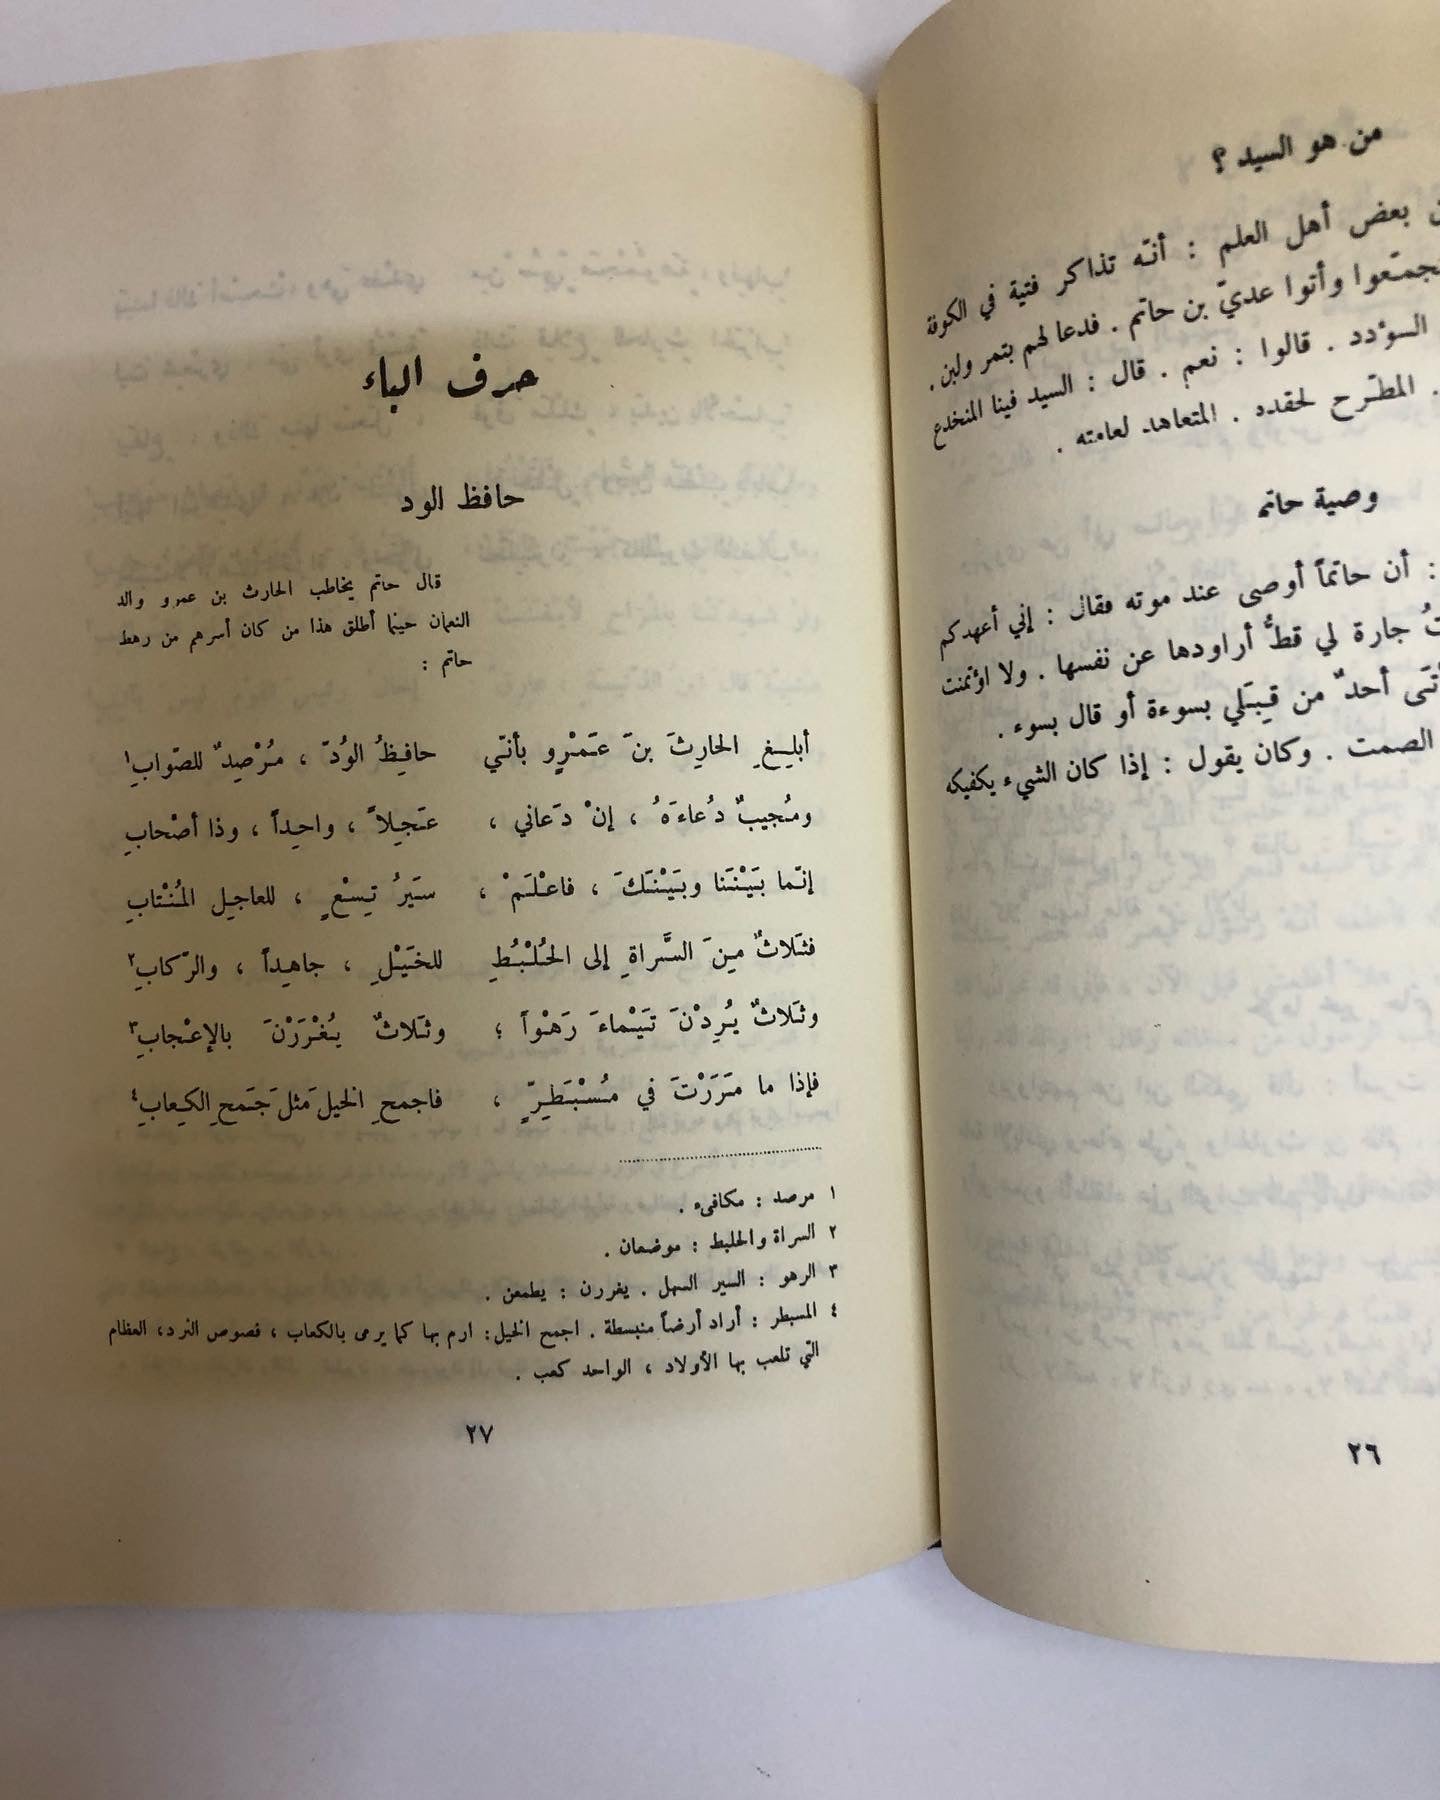 من هو السيد ؟
بعض أهل العلم : أنّه تذاكر فتية في الكوفة
وأتوا عديّ بن حاتم . فدعا لهم بتمر ولبن .
السؤدد . قالوا : نعم . قال : السيد فينا المنخدع
. المطّرح لحقده . المتعاهد لعامته .
وصية حاتم
: أن حاتماً أوصى عند موته فقال : إني أعهدكم
جارة لي قطُّ أراودها عن نفسها . ولا اؤتمنت
أحدٌ من قِبَلي بسوءة أو قال بسوء .
الصمت . وكان يقول : إذا كان الشيء يكفيكه
٢٦
حرف الباء
حافظ الود
قال حاتم يخاطب الحارث بن عمرو والد
النعمان حينما أطلق هذا من كان أسرهم من رهط
حاتم :
أبلِغِ الحارِثَ بنَ عَمْرٍو بأنّي حافِظُ الوُدّ ، مُرْصِدٌ للصّوابِ١
ومُجيبٌ دُعاءَهُ ، إنْ دَعاني ، عَجِلاً ، واحِداً ، وذا أصْحابِ
إنّما بَيْنَنا وبَيْنَكَ ، فاعْلَمْ ، سَيرُ تِسْعٍ ، للعاجِلِ المُنْتابِ
فثَلاثٌ مِنَ السَّراةِ إلى الحُلْبُطِ للخَيْلِ ، جاهِداً ، والرّكابِ٢
وثَلاثٌ يُرِدْنَ تَيْماءَ رَهْواً ؛ وثَلاثٌ يُغْرَرْنَ بالإعْجابِ٣
فإذا ما مَرَرْتَ في مُسْبَطِرٍّ ، فاجمحِ الخيلَ مَثلَ جَمحِ الكِعابِ٤
١ مرصد : مكافىء .
٢ السراة والحلبط : موضعان .
٣ الرهو : السير السهل . يغررن : يطمعن .
٤ المسبطر : أراد أرضاً منبسطة . اجمح الخيل : ارم بها كما يرمى بالكعاب ، فصوص النرد، العظام
التي تلعب بها الأولاد ، الواحد كعب .
٢٧